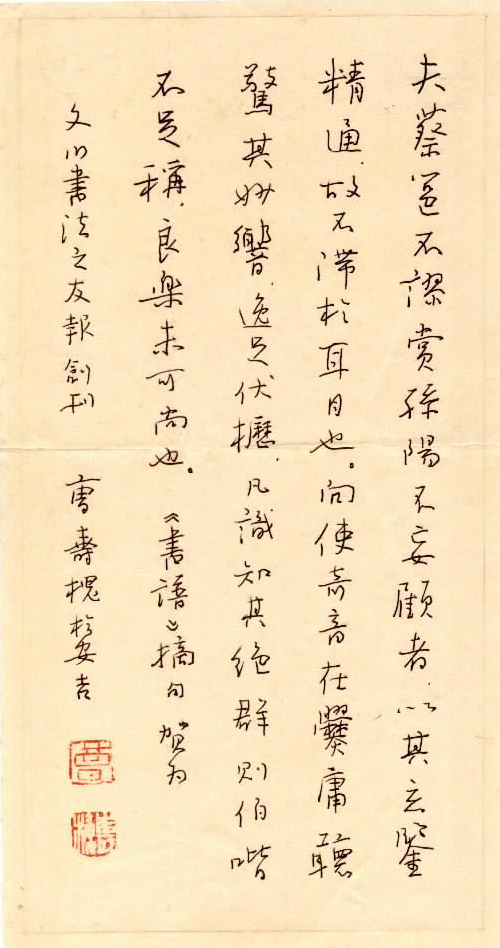 夫蔡邕不謬賞孫陽不妄顧者，以其玄鑒
精通，故不滯於耳目也。向使奇音在爨庸聽
驚其妙響，逸足伏櫪，凡識知其絕群則伯喈
不足稱，良樂未可尚也。《書譜》摘句 賀为
文川書法之友報創刊 曹壽槐於安吉